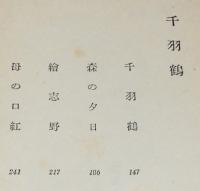 千羽鶴
千羽鶴
147
森の夕日
186
繪志野
217
母の口紅
241